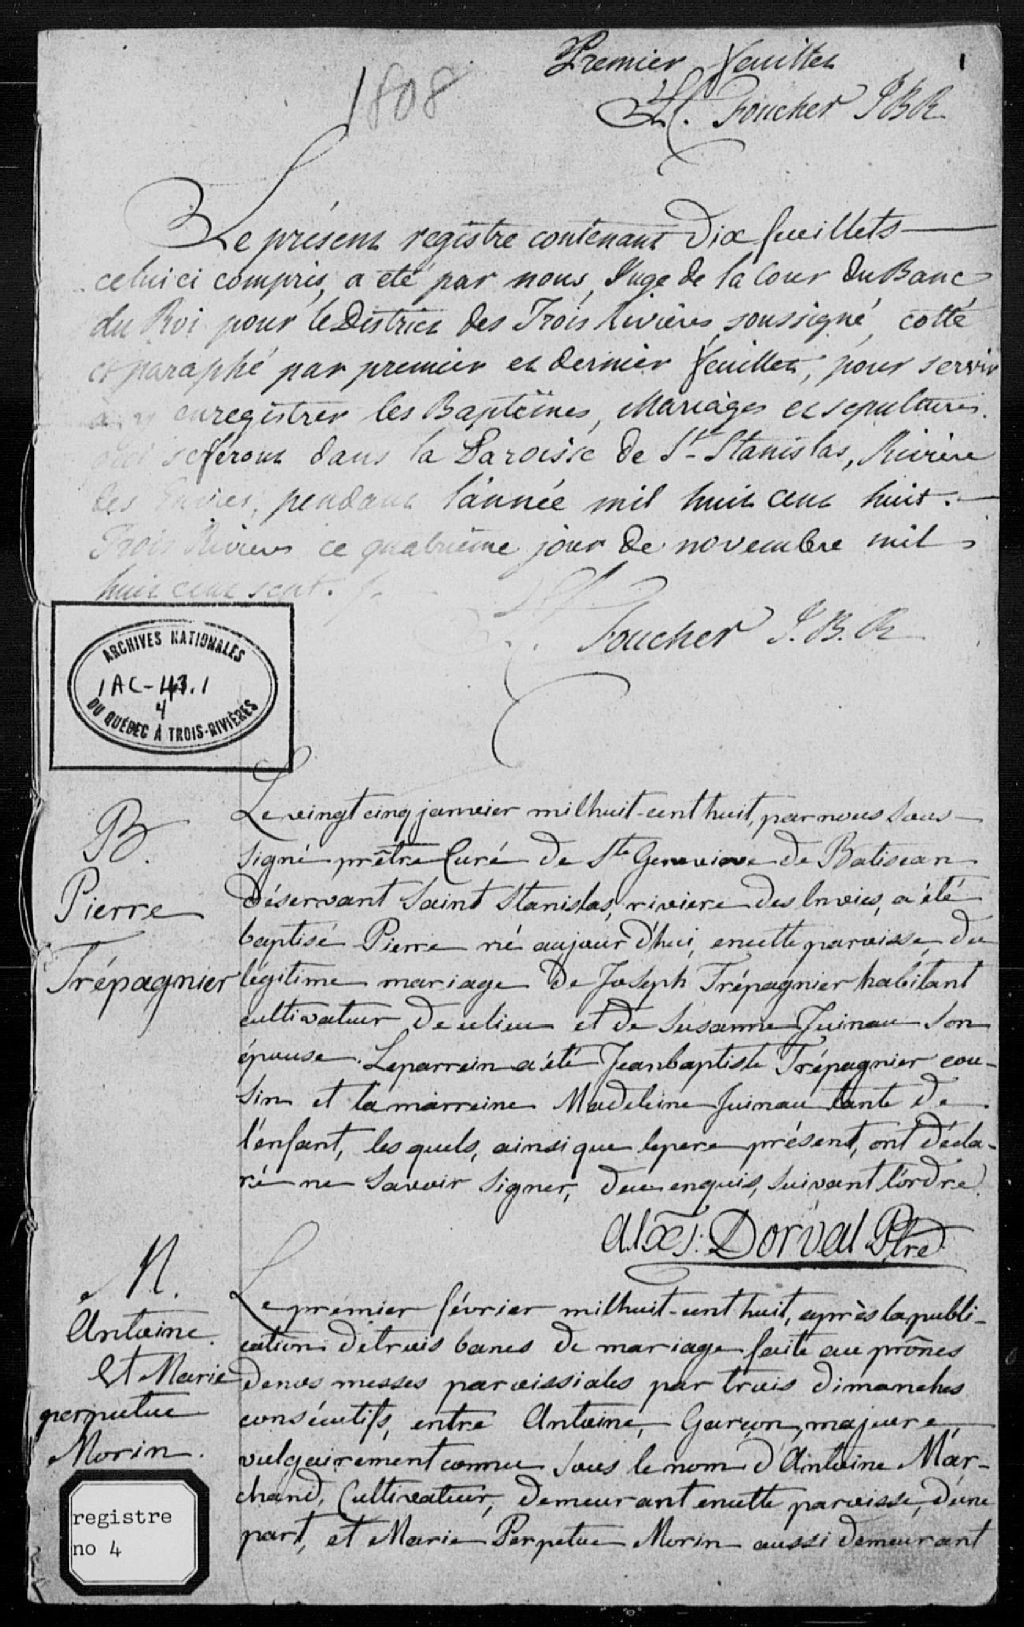 Premier feuillet 1
1808
L. C. Foucher J.B.R.
Le présent registre contenant Dix feuillets
celuici compris, a été par nous, Juge de la Cour du Banc
du Roi pour le District des Trois Rivières soussigné, cotté
et paraphé par premier et dernier feuillet, pour servir
à y enregistrer les Baptêmes, Mariages et sepultures
qui se feront dans la Paroisse de St Stanislas, Rivière
des Envies, pendant l'année mil huit cent huit.
Trois Rivieres ce quatrième jour de novembre mil
huit cent sept.
L. C. Foucher J.B.R.
ARCHIVES NATIONALES
1AC-43.1
4
DU QUÉBEC À TROIS-RIVIÈRES
B.
Pierre
Trépagnier
Le vingt cinq janvier mil huit-cent huit, par nous sous-
signé prêtre Curé de Ste Genevieve de Batiscan
Déservant Saint Stanislas, riviere des Envies, a été
baptisé Pierre né aujourd'hui, en cette paroisse, du
légitime mariage de Joseph Trépagnier habitant
cultivateur de ce lieu et de Susanne Juinau son
épouse. Le parrein a été Jean baptiste Trépagnier cou-
sin et la marreine Madeleine Juinau tante de
l'enfant, les quels, ainsi que le pere présent, ont décla-
ré ne savoir signer, de ce enquis, suivant l'ordre.
Alxs: Dorval Ptre
M.
Antoine
et Marie
perpetue
Morin.
Le premier février mil huit-cent huit, après la publi-
cation de trois bancs de mariage faite au prônes
de nos messes paroissiales par trois dimanches
consécutifs, entre Antoine, Garçon majeure
vulgairement connu sous le nom d'Antoine Mar-
chand, Cultivateur, demeurant en cette paroisse, d'une
part, et Marie Perpetue Morin aussi demeurant
registre
no 4